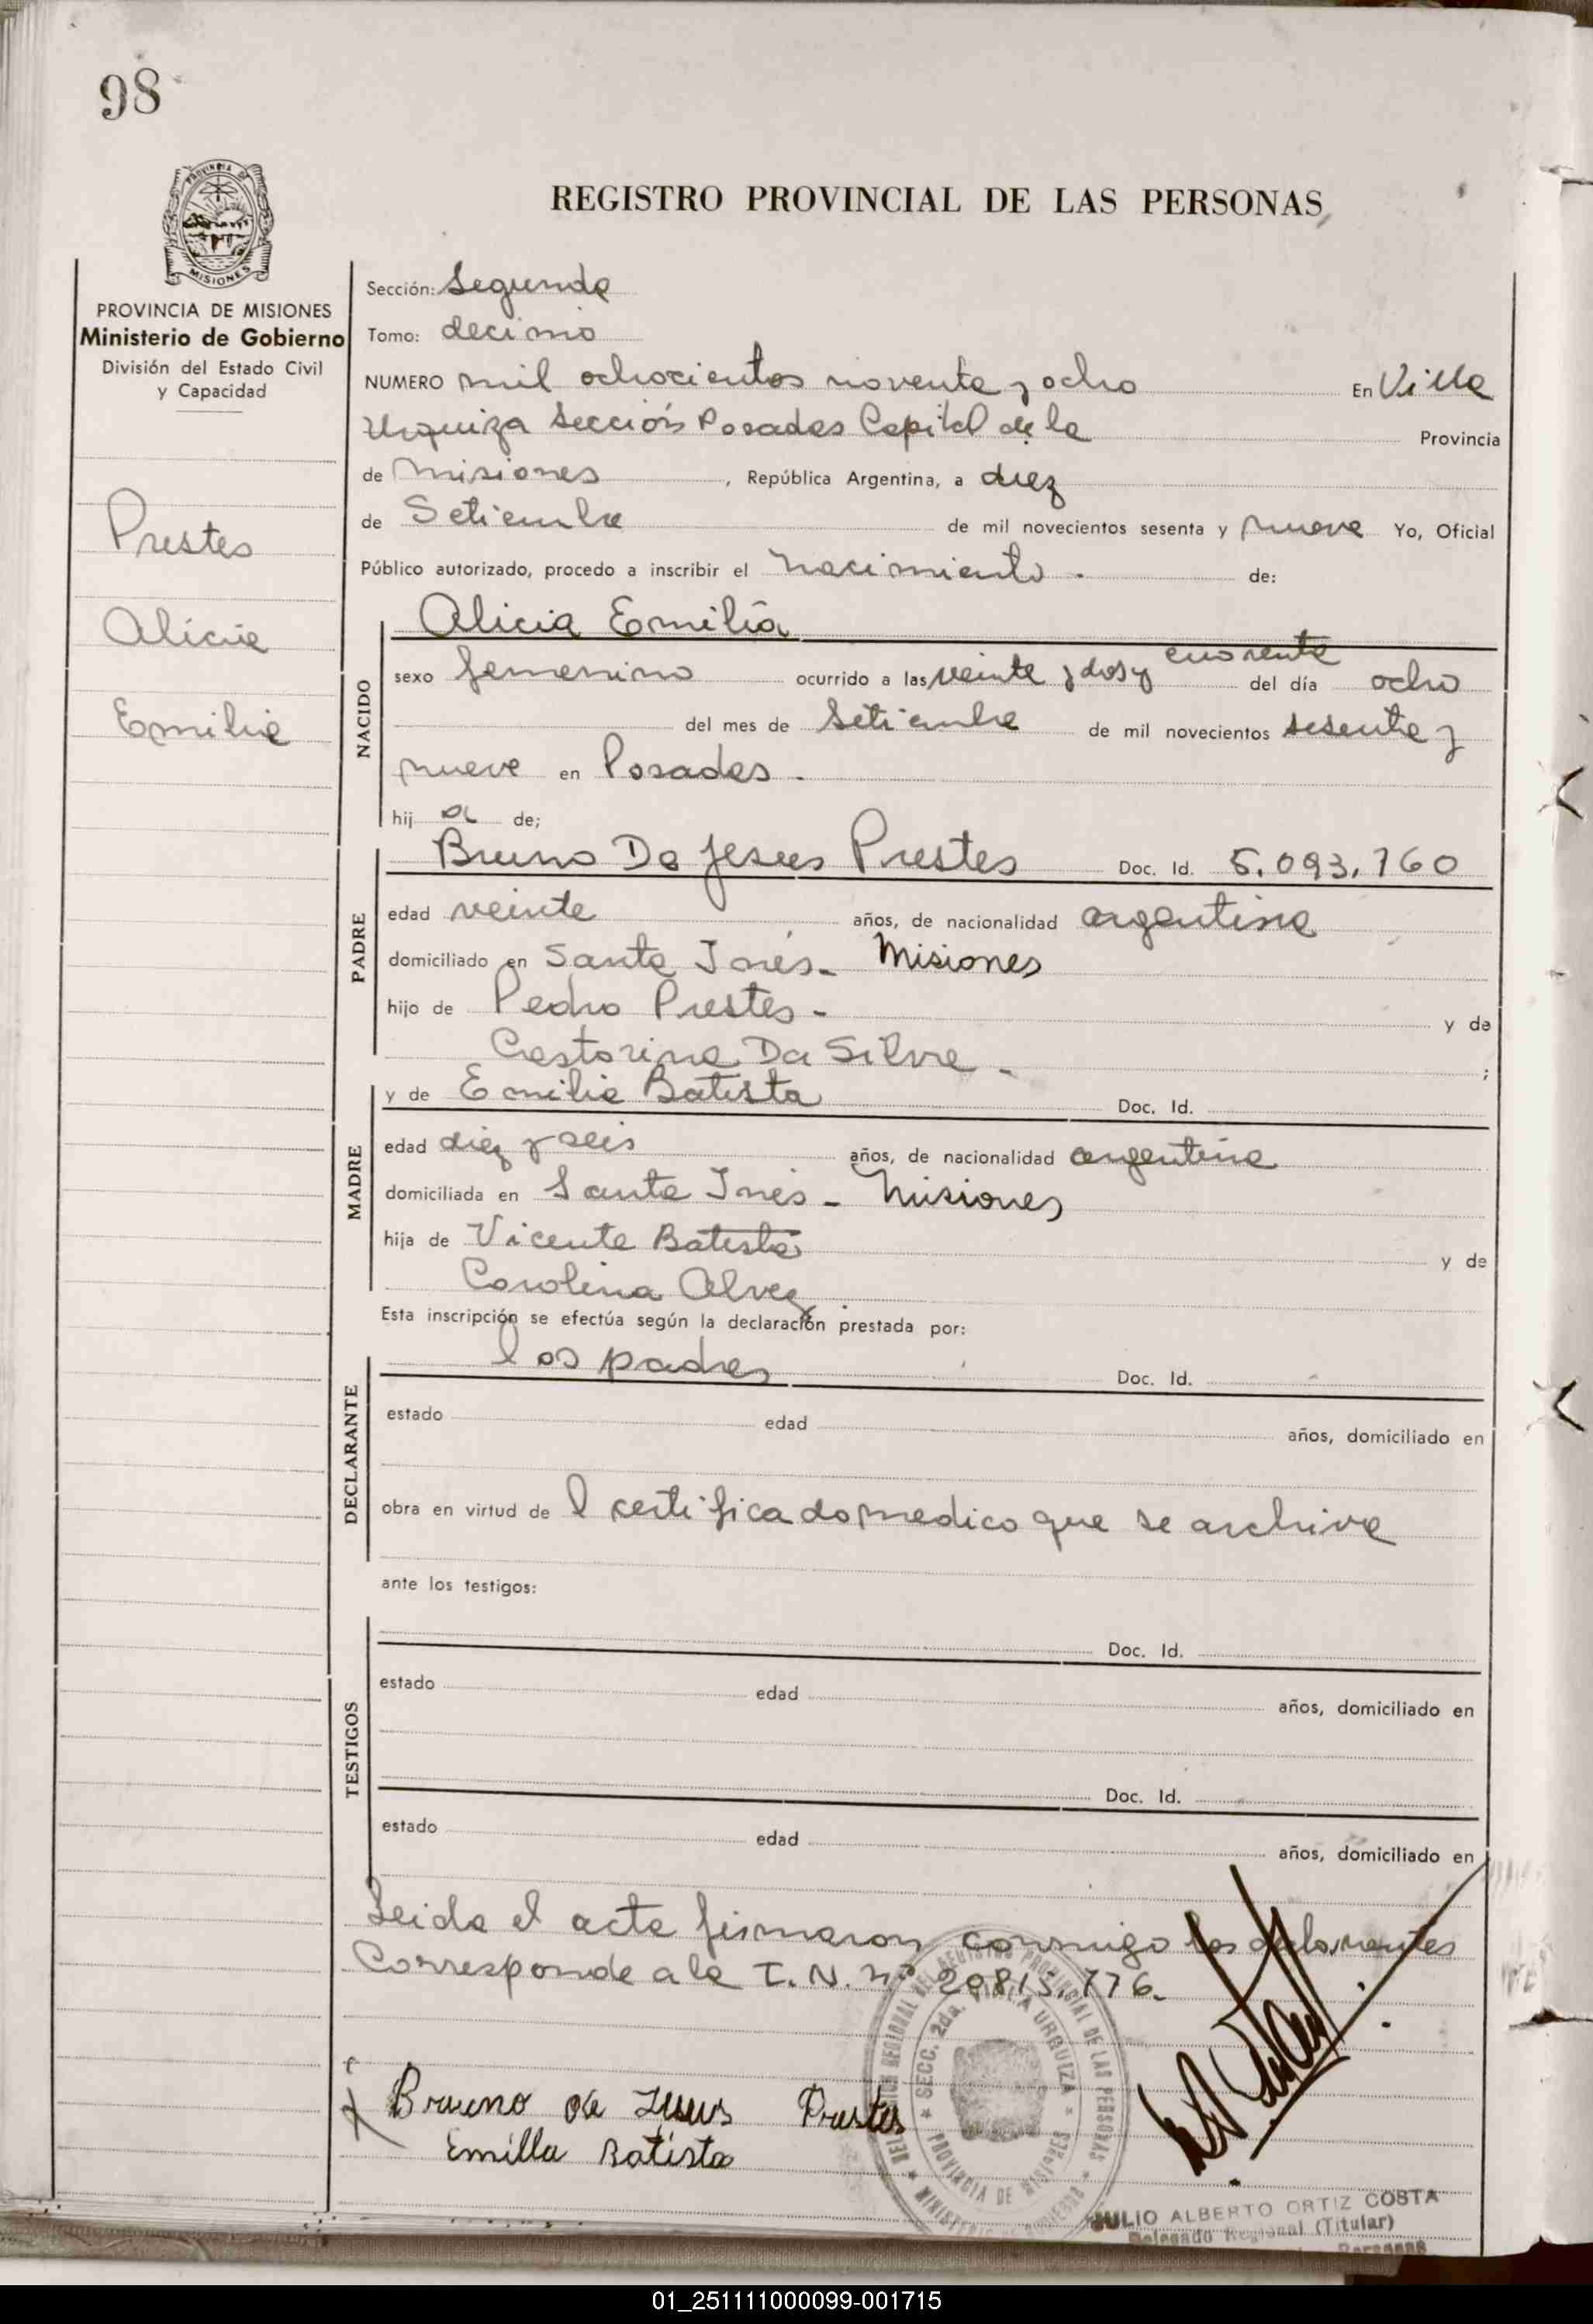 98
PROVINCIA DE
MISIONES
PROVINCIA DE MISIONES
Ministerio de Gobierno
División del Estado Civil
y Capacidad
Prestes
Alicia
Emilia
REGISTRO PROVINCIAL DE LAS PERSONAS
Sección: Segunda
Tomo: decimo
NUMERO mil ochocientos noventa y ocho En Villa
Urquiza Sección Posadas Capital de la Provincia
de Misiones, República Argentina, a diez
de Setiembre de mil novecientos sesenta y nueve Yo, Oficial
Público autorizado, procedo a inscribir el nacimiento. de:
NACIDO
Alicia Emilia
sexo femenino ocurrido a las veinte y dos y cuarenta del día ocho
del mes de Setiembre de mil novecientos sesenta y
nueve en Posadas.
hij a de;
PADRE
Bruno Da Jesus Prestes Doc. Id. 5.093.760
edad veinte años, de nacionalidad argentina
domiciliado en Santa Inés - Misiones
hijo de Pedro Prestes - y de
Castorina Da Silva - ;
MADRE
y de Emilia Batista Doc. Id.
edad diez y seis años, de nacionalidad argentina
domiciliada en Santa Inés - Misiones
hija de Vicente Batista y de
Carolina Alvez.
Esta inscripción se efectúa según la declaración prestada por:
DECLARANTE
los padres Doc. Id.
estado edad años, domiciliado en
obra en virtud de l certificado medico que se archiva
ante los testigos:
TESTIGOS
Doc. Id.
estado edad años, domiciliado en
Doc. Id.
estado edad años, domiciliado en
Leida el acta firmaron conmigo los declarantes
Corresponde a la T. N. nº 20815.776.
SECC. 2da. VILLA URQUIZA
PROVINCIA DE MISIONES
Brauno de Jesus Prestes
Emilla Batista
JULIO ALBERTO ORTIZ COSTA
Delegado Regional (Titular)
01_251111000099-001715